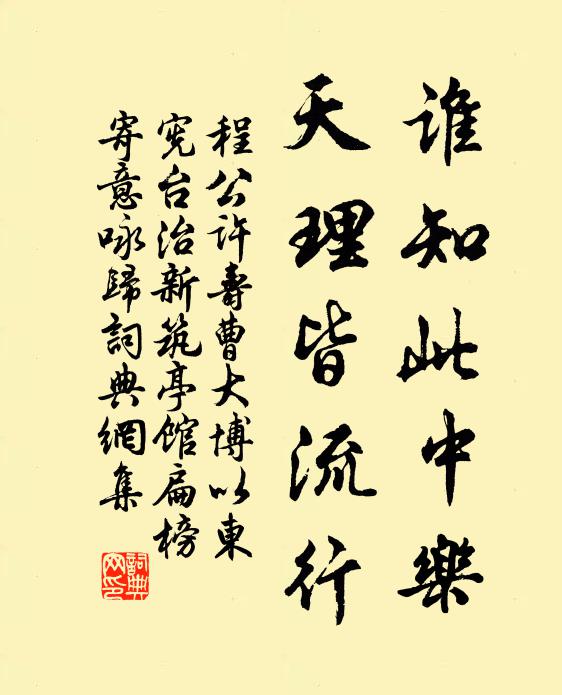 誰知此中樂
天理皆流行
程公許壽曹大博以東
憲台治新筑亭館扁榜
寄意咏歸詞典網集
詞典網印